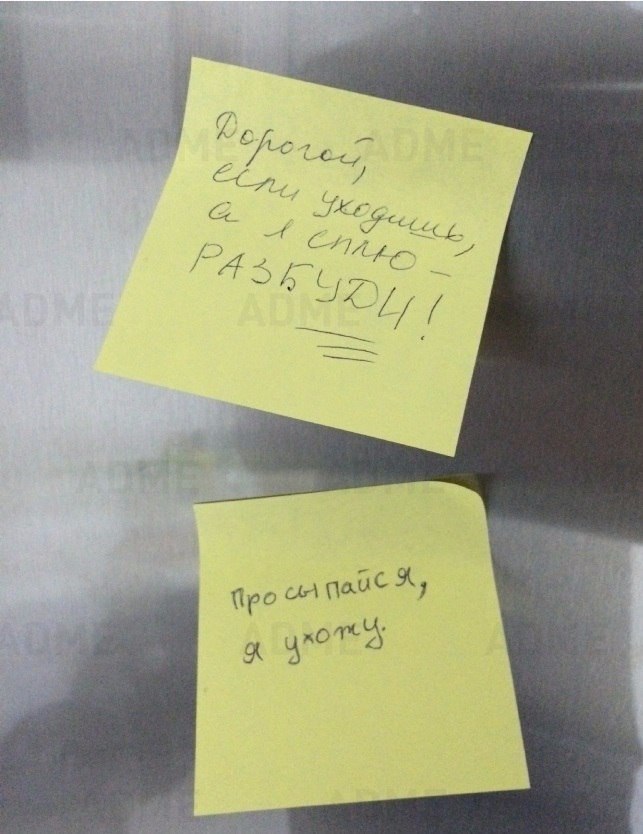 Дорогой,
если уходишь,
а я сплю —
РАЗБУДИ!
Просыпайся,
я ухожу.
ADME